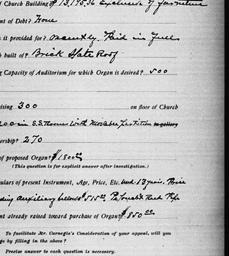 of Church Building $13,195.36 Exclusive of furniture
nt of Debt? None
is it provided for? recently Paid in full
built of? Brick Slate Roof
g Capacity of Auditorium for which Organ is desired? 500
ising 300 on floor of Church
200 in S.S. Rooms with Movable Partition in gallery
ership? 270
of proposed Organ? $1800
(This question is for explicit answer after investigation.)
ulars of present Instrument, Age, Price, Etc. 
ding Auxiliary bellows $
nt already raised toward purchase of Organ? $850
To facilitate Mr. Carnegie's Consideration of your appeal, will you
ge by filling in the above?
Precise answer to each question is necessary.